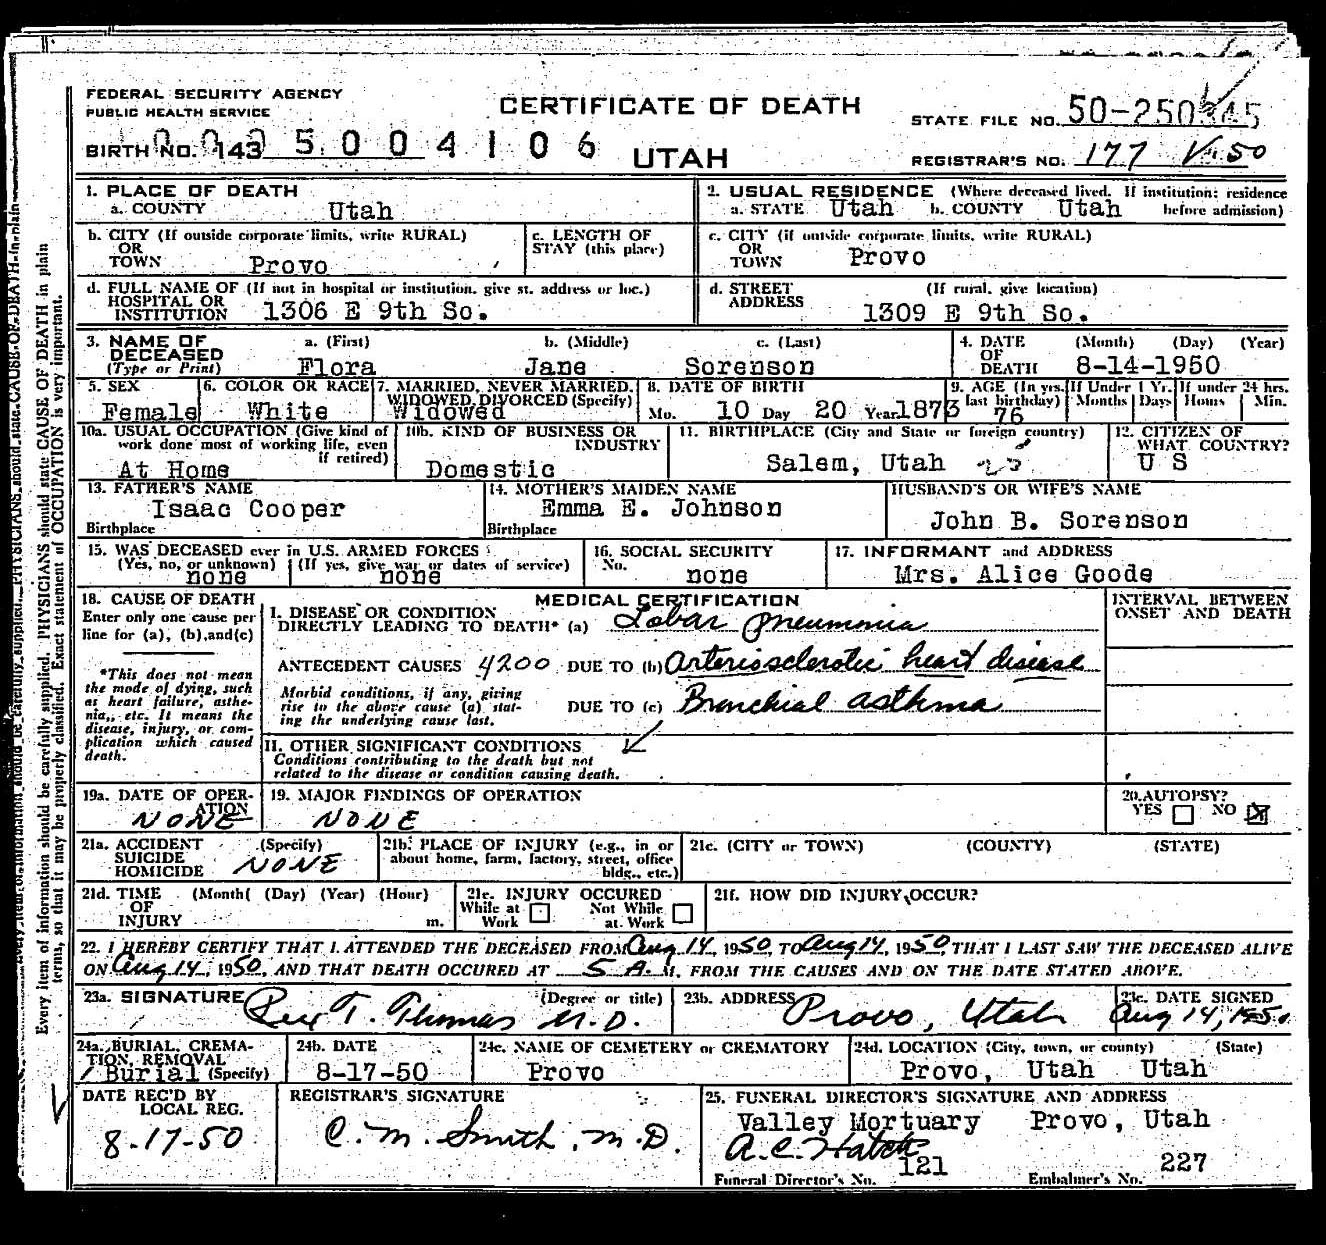 FEDERAL SECURITY AGENCY
PUBLIC HEALTH SERVICE
CERTIFICATE OF DEATH
UTAH
BIRTH NO. 143 5004106
STATE FILE NO. 50-250
REGISTRAR'S NO. 177 V-50
1. PLACE OF DEATH
a. COUNTY Utah
2. USUAL RESIDENCE (Where deceased lived. If institution: residence before admission)
a. STATE Utah b. COUNTY Utah
b. CITY (If outside corporate limits, write RURAL)
OR
TOWN Provo
c. LENGTH OF
STAY (this place)
c. CITY (if outside corporate limits, write RURAL)
OR
TOWN Provo
d. FULL NAME OF (If not in hospital or institution, give st. address or loc.)
HOSPITAL OR
INSTITUTION 1306 E 9th So.
d. STREET (If rural, give location)
ADDRESS 1309 E 9th So.
3. NAME OF a. (First) b. (Middle) c. (Last)
DECEASED
(Type or Print) Flora Jane Sorenson
4. DATE (Month) (Day) (Year)
OF
DEATH 8-14-1950
5. SEX
Female
6. COLOR OR RACE
White
7. MARRIED, NEVER MARRIED,
WIDOWED, DIVORCED (Specify)
Widowed
8. DATE OF BIRTH
Mo. 10 Day 20 Year 1873
9. AGE (In yrs. last birthday) 76
If Under 1 Yr. Months Days
If under 24 hrs. Hours Min.
10a. USUAL OCCUPATION (Give kind of
work done most of working life, even
if retired)
At Home
10b. KIND OF BUSINESS OR
INDUSTRY
Domestic
11. BIRTHPLACE (City and State or foreign country)
Salem, Utah
12. CITIZEN OF
WHAT COUNTRY?
U S
13. FATHER'S NAME
Isaac Cooper
Birthplace
14. MOTHER'S MAIDEN NAME
Emma E. Johnson
Birthplace
HUSBAND'S OR WIFE'S NAME
John B. Sorenson
15. WAS DECEASED ever in U.S. ARMED FORCES
(Yes, no, or unknown) (If yes, give war or dates of service)
none none
16. SOCIAL SECURITY
No. none
17. INFORMANT and ADDRESS
Mrs. Alice Goode
18. CAUSE OF DEATH
Enter only one cause per
line for (a), (b), and (c)
*This does not mean
the mode of dying, such
as heart failure, asthe-
nia,, etc. It means the
disease, injury, or com-
plication which caused
death.
MEDICAL CERTIFICATION
INTERVAL BETWEEN
ONSET AND DEATH
I. DISEASE OR CONDITION
DIRECTLY LEADING TO DEATH* (a) Lobar pneumonia
ANTECEDENT CAUSES 4200 DUE TO (b) Arteriosclerotic heart disease
Morbid conditions, if any, giving
rise to the above cause (a) stat-
ing the underlying cause last.
DUE TO (c) Bronchial asthma
II. OTHER SIGNIFICANT CONDITIONS
Conditions contributing to the death but not
related to the disease or condition causing death.
19a. DATE OF OPER-
ATION
NONE
19. MAJOR FINDINGS OF OPERATION
NONE
20. AUTOPSY?
YES NO
21a. ACCIDENT (Specify)
SUICIDE
HOMICIDE NONE
21b. PLACE OF INJURY (e.g., in or
about home, farm, factory, street, office
bldg., etc.)
21c. (CITY or TOWN) (COUNTY) (STATE)
21d. TIME (Month( (Day) (Year) (Hour)
OF
INJURY m.
21e. INJURY OCCURED
While at Work Not While at Work
21f. HOW DID INJURY OCCUR?
22. I HEREBY CERTIFY THAT I ATTENDED THE DECEASED FROM Aug 14, 1950, TO Aug 14, 1950, THAT I LAST SAW THE DECEASED ALIVE
ON Aug 14, 1950, AND THAT DEATH OCCURED AT 5 A. M. FROM THE CAUSES AND ON THE DATE STATED ABOVE.
23a. SIGNATURE (Degree or title)
Rex T. Thomas M.D.
23b. ADDRESS
Provo, Utah
23c. DATE SIGNED
Aug 14, 1950
24a. BURIAL, CREMA-
TION, REMOVAL
Burial (Specify)
24b. DATE
8-17-50
24c. NAME OF CEMETERY or CREMATORY
Provo
24d. LOCATION (City, town, or county) (State)
Provo, Utah Utah
DATE REC'D BY
LOCAL REG.
8-17-50
REGISTRAR'S SIGNATURE
C. M. Smith, M.D.
25. FUNERAL DIRECTOR'S SIGNATURE AND ADDRESS
Valley Mortuary Provo, Utah
A. C. Hatch
Funeral Director's No. 121
Embalmer's No. 227
Every item of information should be carefully supplied. PHYSICIANS should state CAUSE OF DEATH in plain
terms, so that it may be properly classified. Exact statement of OCCUPATION is very important.